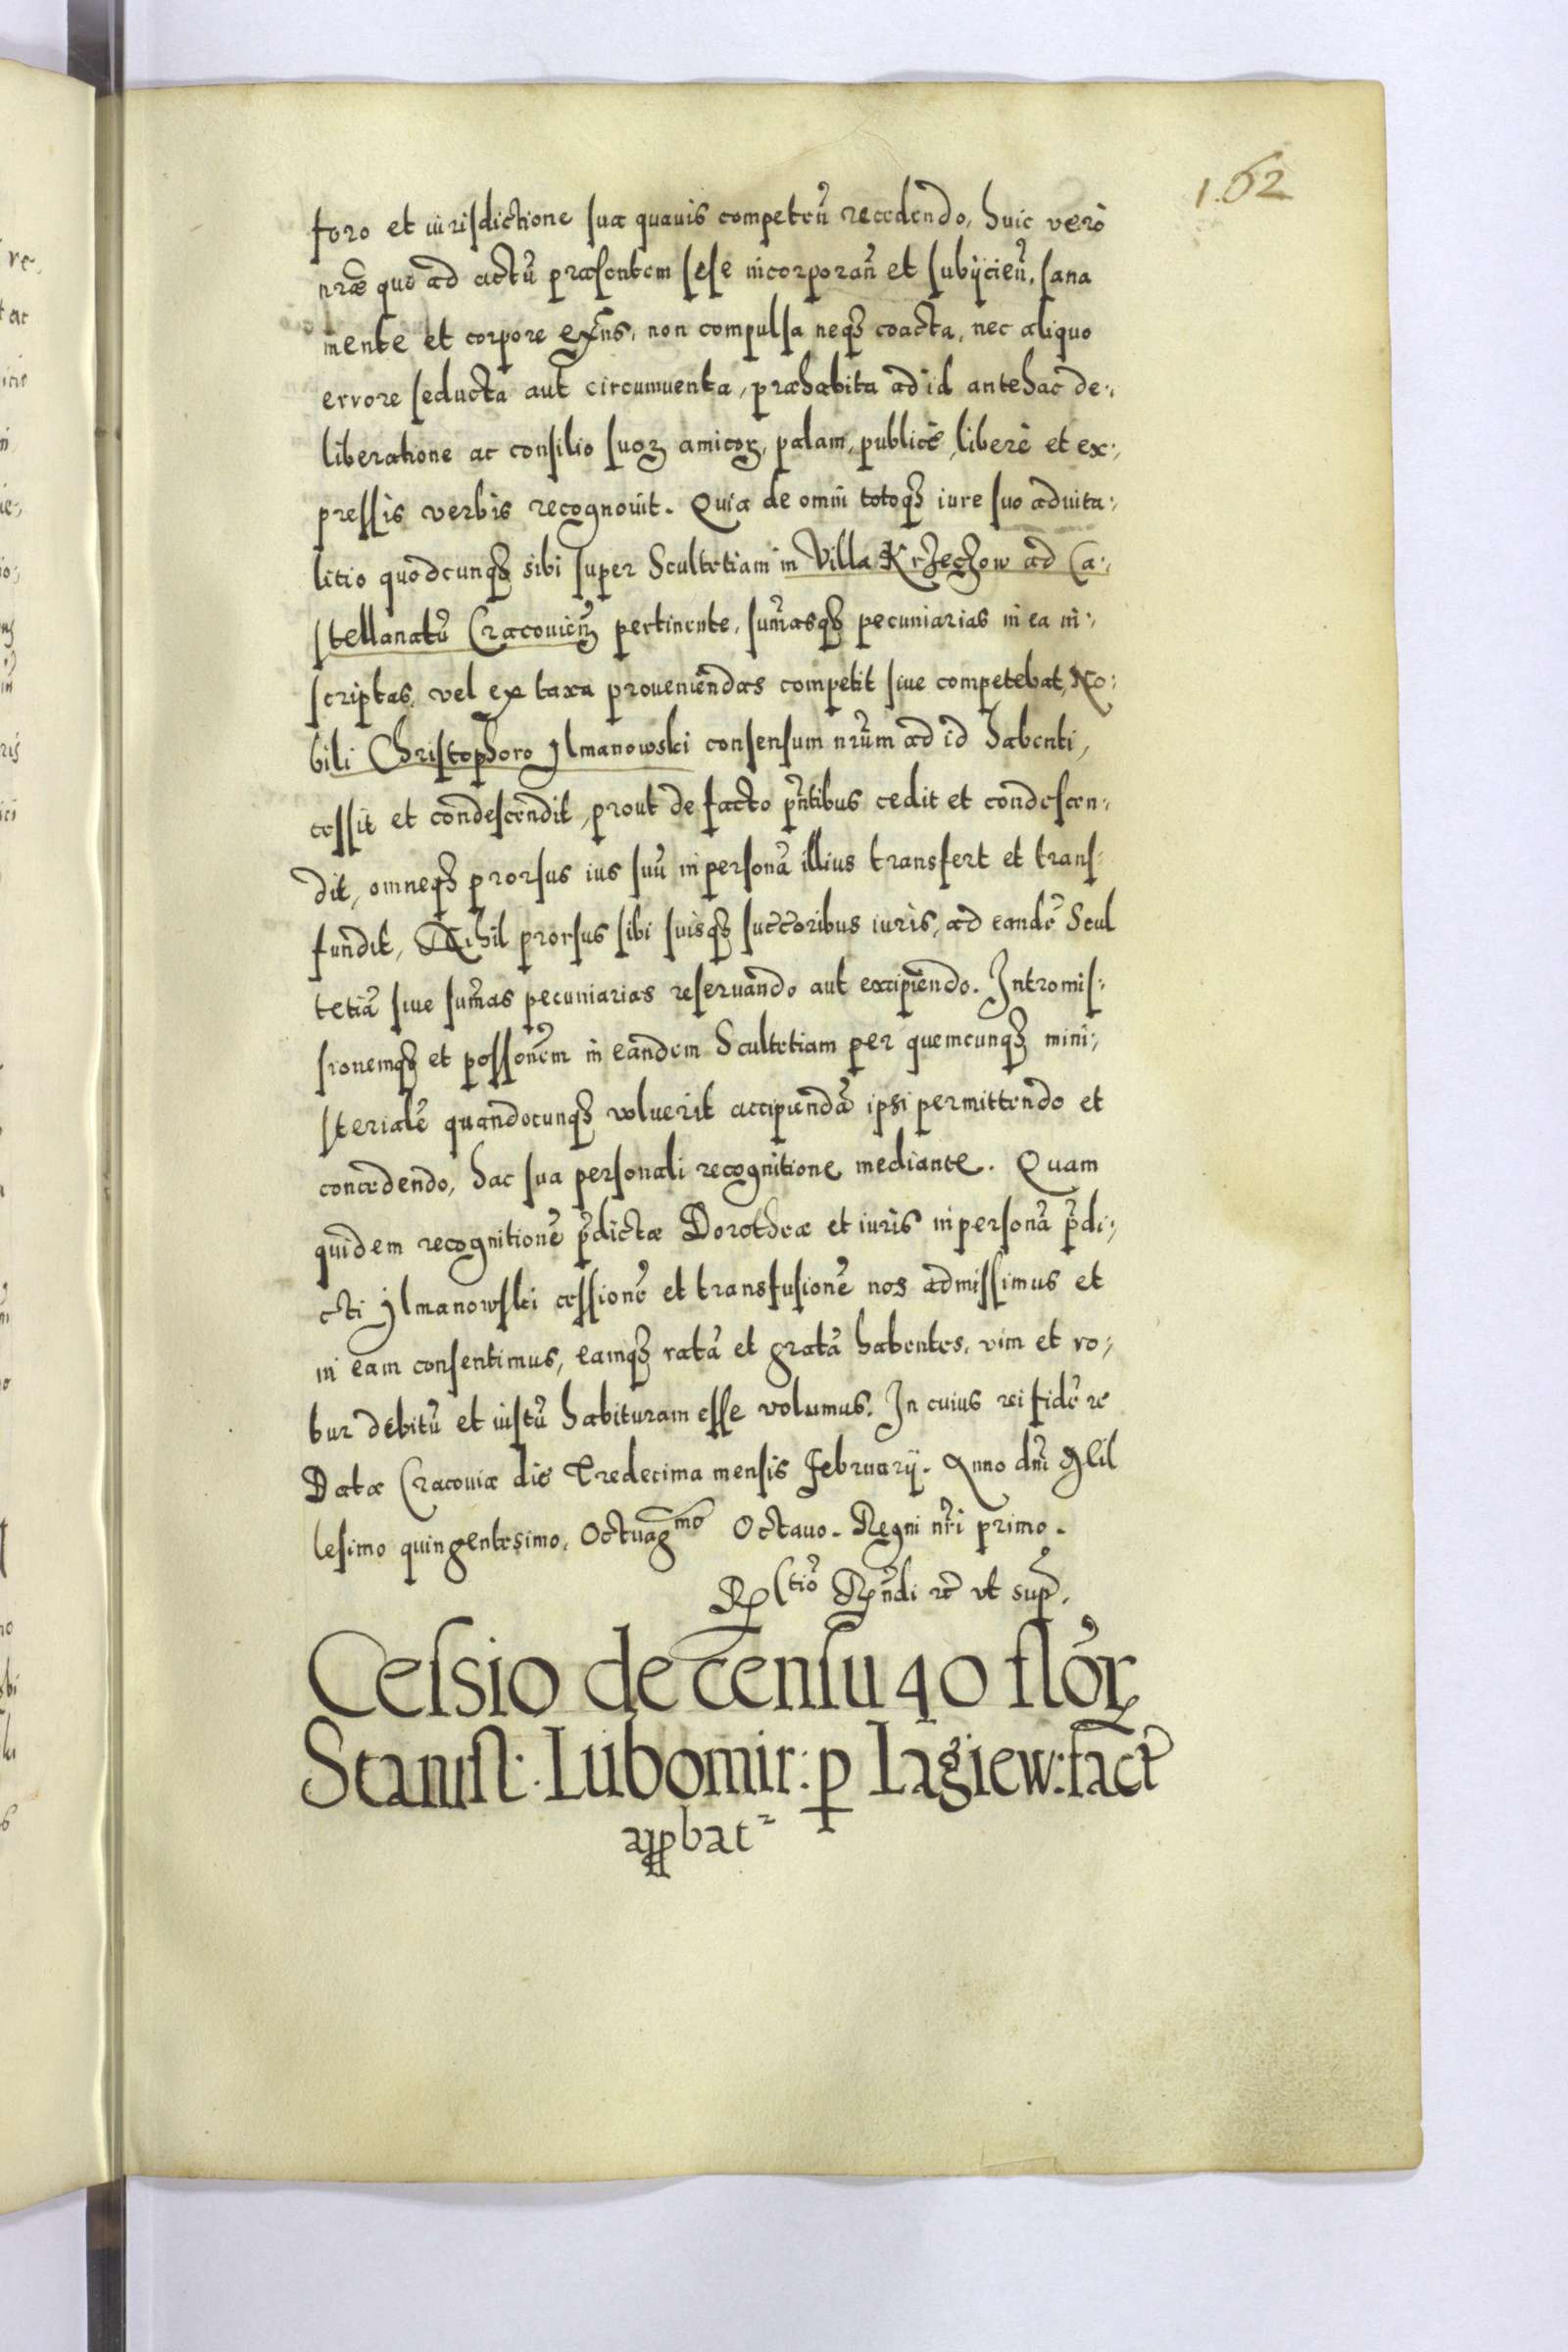 162
foro et iurisdictione sua quauis competeñ recedendo, huic verò
nr̃æ quo ad actũ præsentem sese incorporañ et subijcieñ, sana
mente et corpore exñs, non compulsa neqȝ coacta, nec aliquo
errore seducta aut circumuenta, præhabita ad id antehac de:
liberatione ac consilio suoꝝ amicoꝝ, palam, publicè, liberè et ex:
pressis verbis recognouit. Quia de omni totoqȝ iure suo aduita:
litio quodcunqȝ sibi super Scultetiam in Villa Krzeczow ad Ca:
stellanatũ Cracovieñ pertinente, sum̃asqȝ pecuniarias in ea in:
scriptas, vel ex taxa proueniendas competit siue competebat, No:
bili Christophoro Jlmanowski consensum nr̃um ad id habenti,
cessit et condescendit, prout de facto pñtibus cedit et condescen:
dit, omneqȝ prorsus ius suũ in personã illius transfert et trans:
fundit, Nihil prorsus sibi suisqȝ succ̃oribus iuris, ad eandẽ Scul
tetiã siue sum̃as pecuniarias reseruando aut excipiendo. Intromis:
sionemqȝ et possonẽm in eandem Scultetiam per quemcunqȝ mini:
sterialẽ quandocunqȝ voluerit accipiendã ipsi permittendo et
concedendo, hac sua personali recognitione mediante. Quam
quidem recognitionẽ p̃dictæ Dorotheæ et iuris in personã p̃di:
cti Jlmanowski cessionẽ et transfusionẽ nos admissimus et
in eam consentimus, eamqȝ ratã et gratã habentes, vim et ro:
bur debitũ et iustũ habituram esse volumus. In cuius rei fidẽ &c
Datæ Cracoviæ die Tredecima mensis Februarij. Anno dñi Mil
lesimo quingentesimo, Octuagmo Octauo. Regni nr̃i primo.
R̃ñdi &c̃ vt sup̃.
Cessio de censu 40 flõr
Stanisl: Lubomir: ꝑ Lagiew: fact̃
apꝓbat²